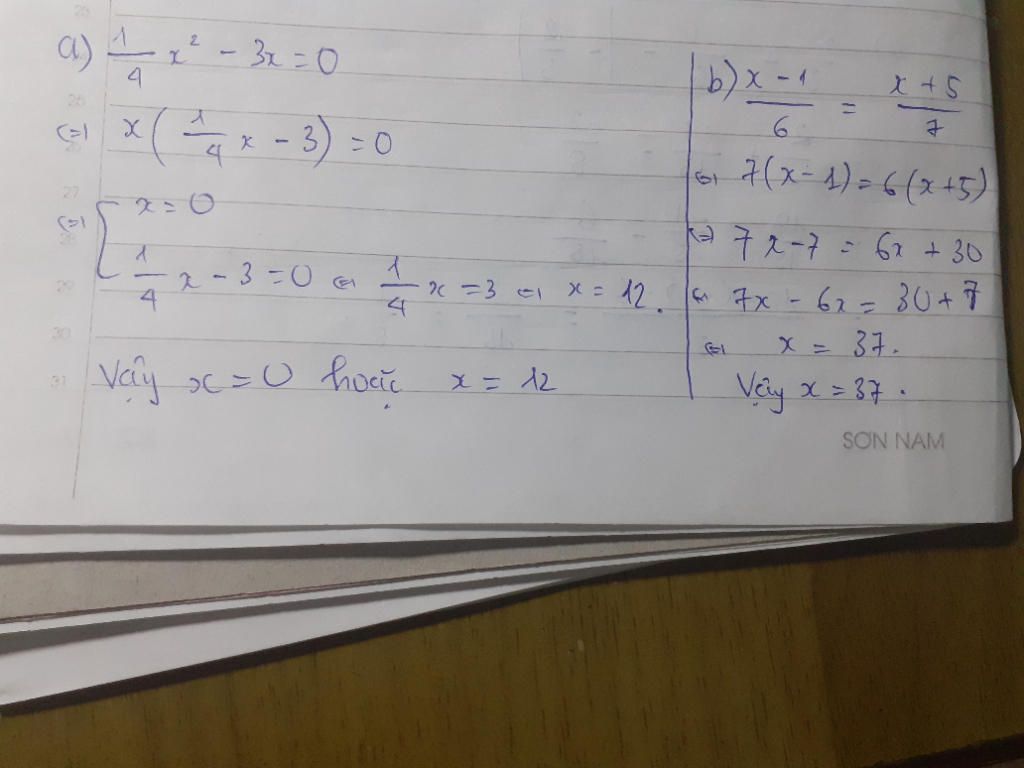 a) 1/4 x² - 3x = 0
⇔ x(1/4 x - 3) = 0
⇔ [ x = 0
1/4 x - 3 = 0 ⇔ 1/4 x = 3 ⇔ x = 12.
Vậy x = 0 hoặc x = 12
b) x - 1/6 = x + 5/7
⇔ 7(x - 1) = 6(x + 5)
⇔ 7x - 7 = 6x + 30
⇔ 7x - 6x = 30 + 7
⇔ x = 37.
Vậy x = 37.
SƠN NAM